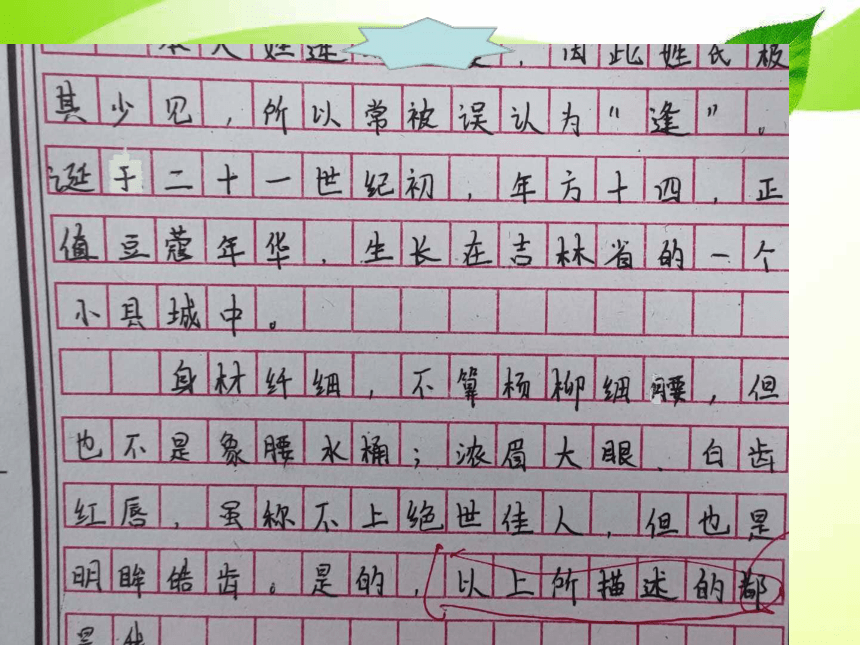 本人姓逄，因此姓氏极
其少见，所以常被误认为“逢”。
诞于二十一世纪初，年方十四，正
值豆蔻年华，生长在吉林省的一个
小县城中。
身材纤细，不算杨柳细腰，但
也不是象腰水桶；浓眉大眼、白齿
红唇，虽称不上绝世佳人，但也是
明眸皓齿。是的，以上所描述的都